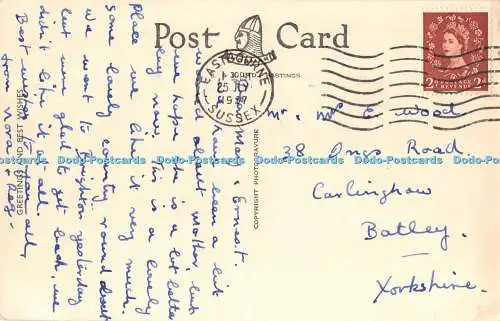 Post Card
EASTBOURNE
25 JLY
SUSSEX
POSTAGE
REVENUE
2D 2D
COPYRIGHT PHOTOGRAVURE
GREETINGS AND BEST WISHES
Mr. Mrs E. Wood
38 Ings Road
Carlinghow
Batley.
Yorkshire.
Dear Mary & Ernest.
have been a bit
about mother, but
we hope she is a lot better
by now. This is a lovely
Place we like it very much.
some lovely country round about
we went to Brighton yesterday
but were glad to get back, we
didn't like it at all.
Best wishes to you all,
from Nora & Reg.
Dodo-Postcards Dodo-Postcards Dodo-Postcards Dodo-Postcards Dodo-Postcards Dodo-Postcards